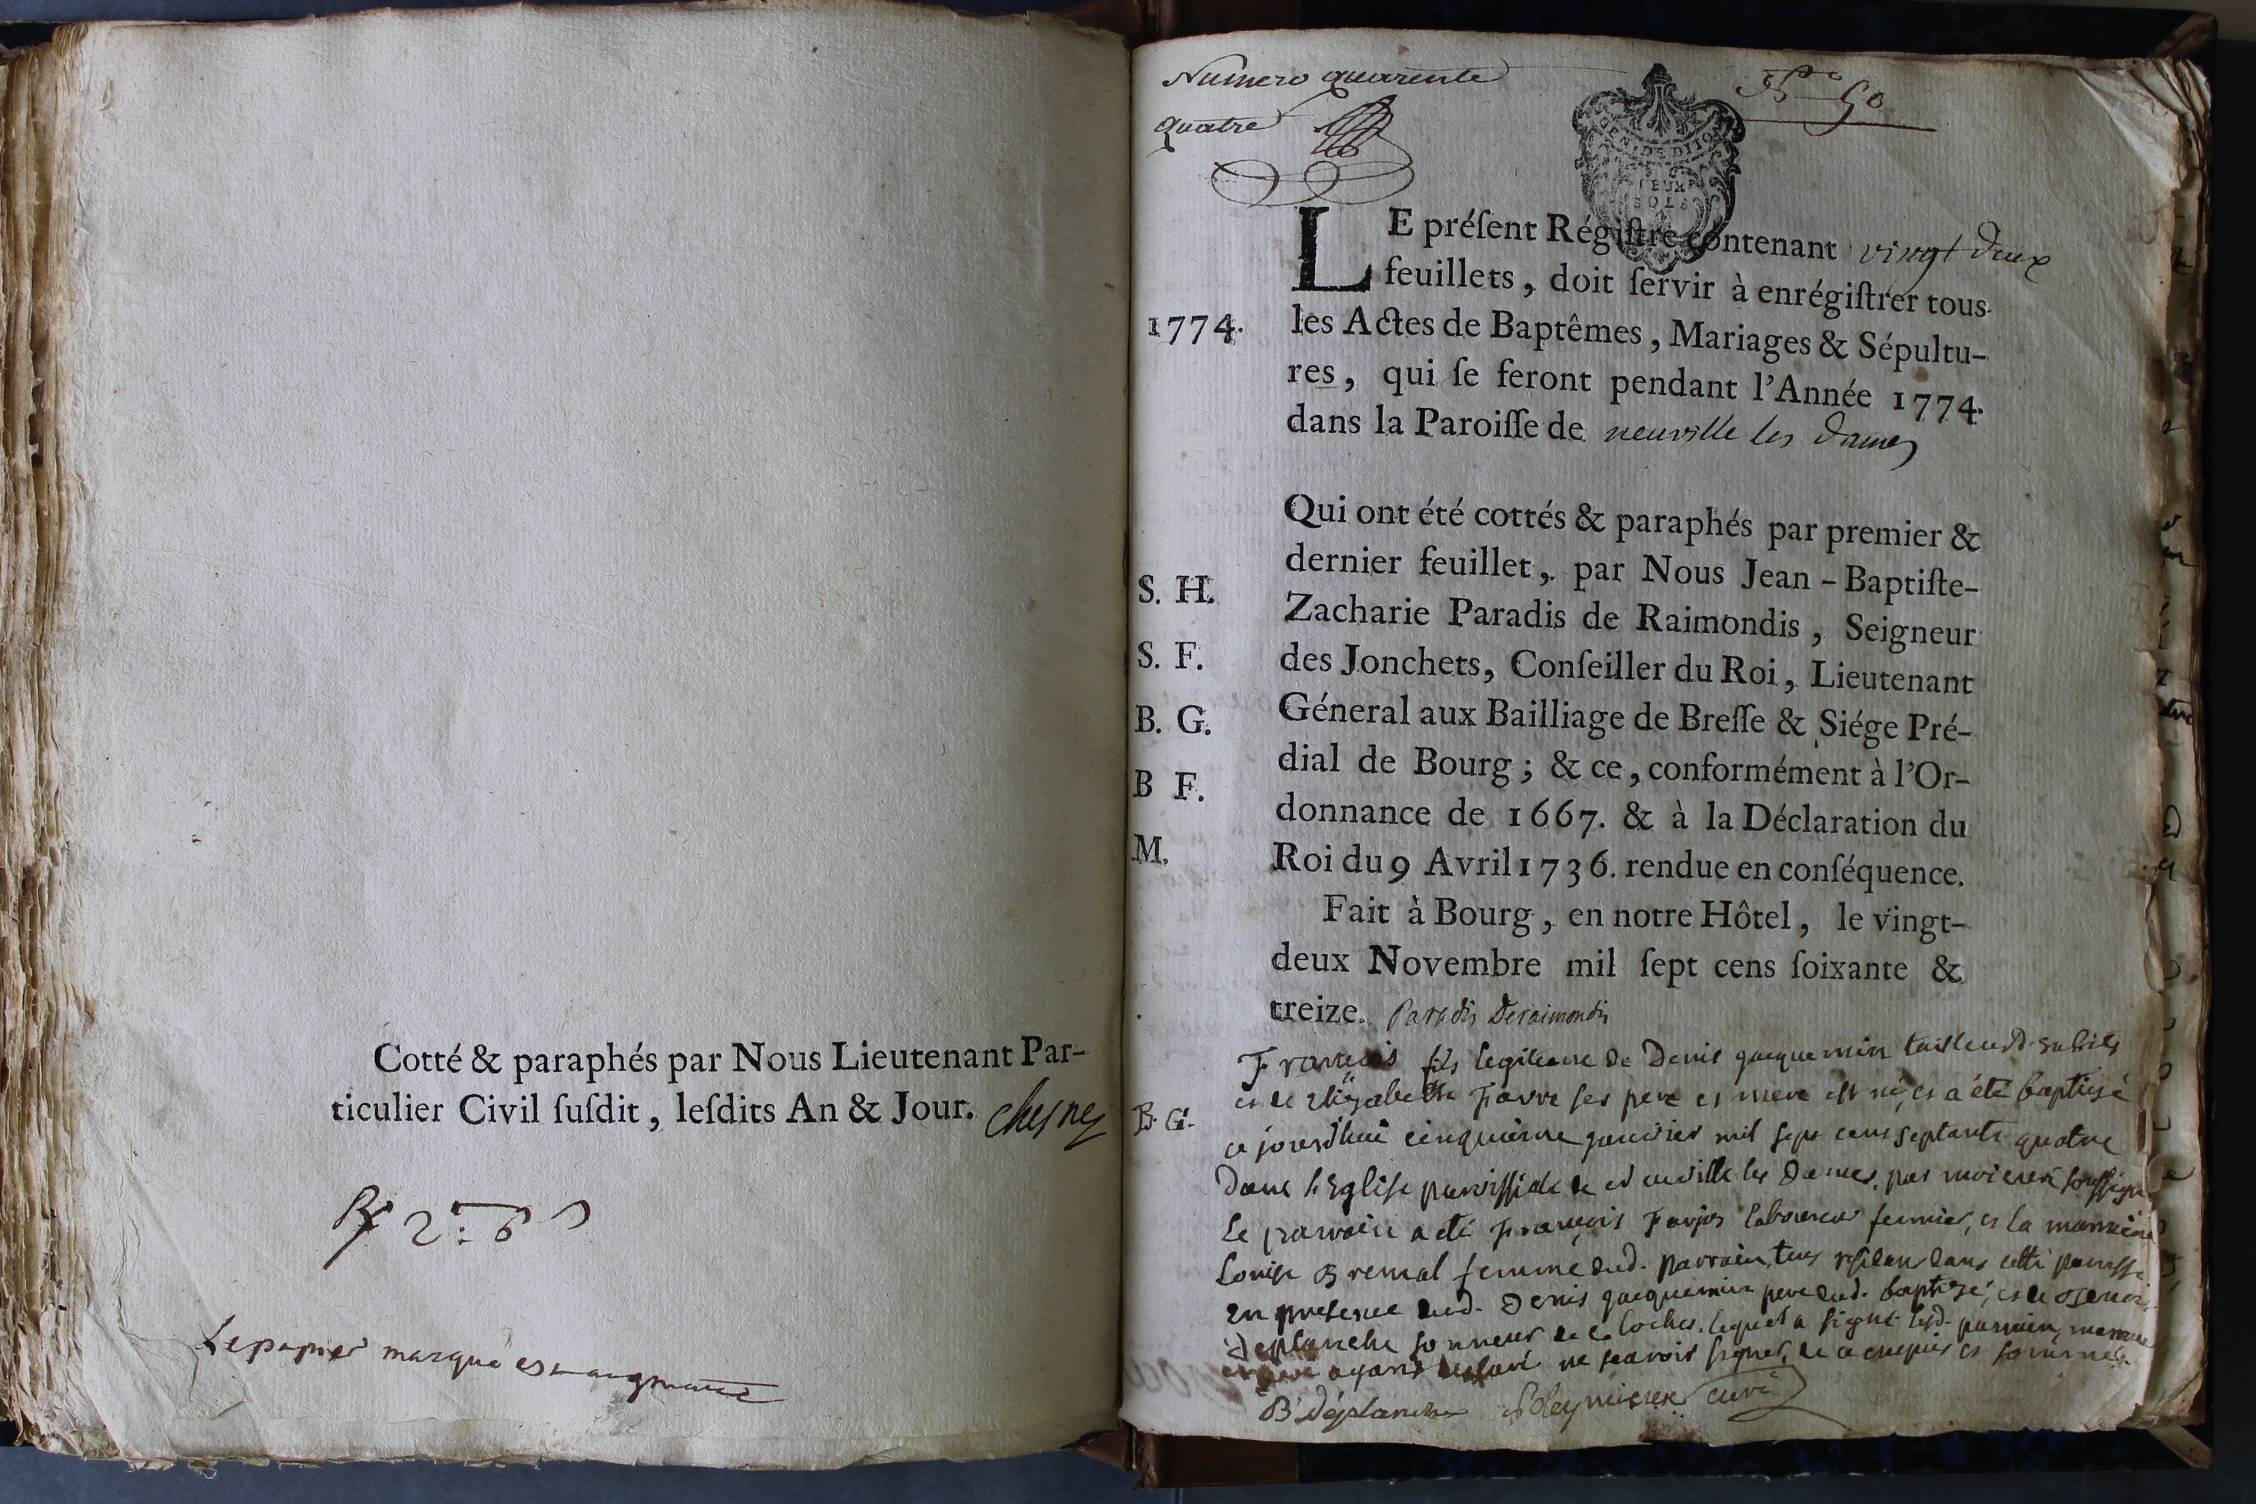 Cotté & paraphés par Nous Lieutenant Par-
ticulier Civil ſuſdit, leſdits An & Jour. chesney
Le papier marqué est augmenté
Numero quarente
quatre
No 50
GEN. DE DIJON
DEUX
SOLS
LE préſent Régiſtre contenant vingt deux
feuillets, doit ſervir à enrégiſtrer tous
1774. les Actes de Baptêmes, Mariages & Sépultu-
res, qui ſe feront pendant l'Année 1774.
dans la Paroiſſe de neuville les dames
Qui ont été cottés & paraphés par premier &
dernier feuillet, par Nous Jean-Baptiſte-
S. H. Zacharie Paradis de Raimondis, Seigneur
S. F. des Jonchets, Conſeiller du Roi, Lieutenant
B. G. Géneral aux Bailliage de Breſſe & Siége Pré-
B F. dial de Bourg; & ce, conformément à l'Or-
donnance de 1667. & à la Déclaration du
M. Roi du 9 Avril 1736. rendue en conſéquence.
Fait à Bourg, en notre Hôtel, le vingt-
deux Novembre mil ſept cens ſoixante &
treize. Paradis Deraimondis
François fils legitime de Denis jacquemin tailleur d'habits
B. G. et de Elizabethe Favre ses pere et mere est né, et a été baptisé
ce jourd'huî cinquieme janvier mil sept cens septante quatre
dans l'Eglise paroissiale de neuville les dames, par moi curé soussigné
le parrain a été François Farjos laboureur fermier, et la marraine
Louise Bremal femme dud. parrain, tous residens dans cette paroisse
en presence dud. Denis jacquemin pere dud. baptisé, et de
déplanche sonneur de cloches, lequel a signé lesd. parrain, marraine
et pere ayans declaré ne scavoir signer, de ce enquis et sommés.
B Déplanche Poleymieux curé